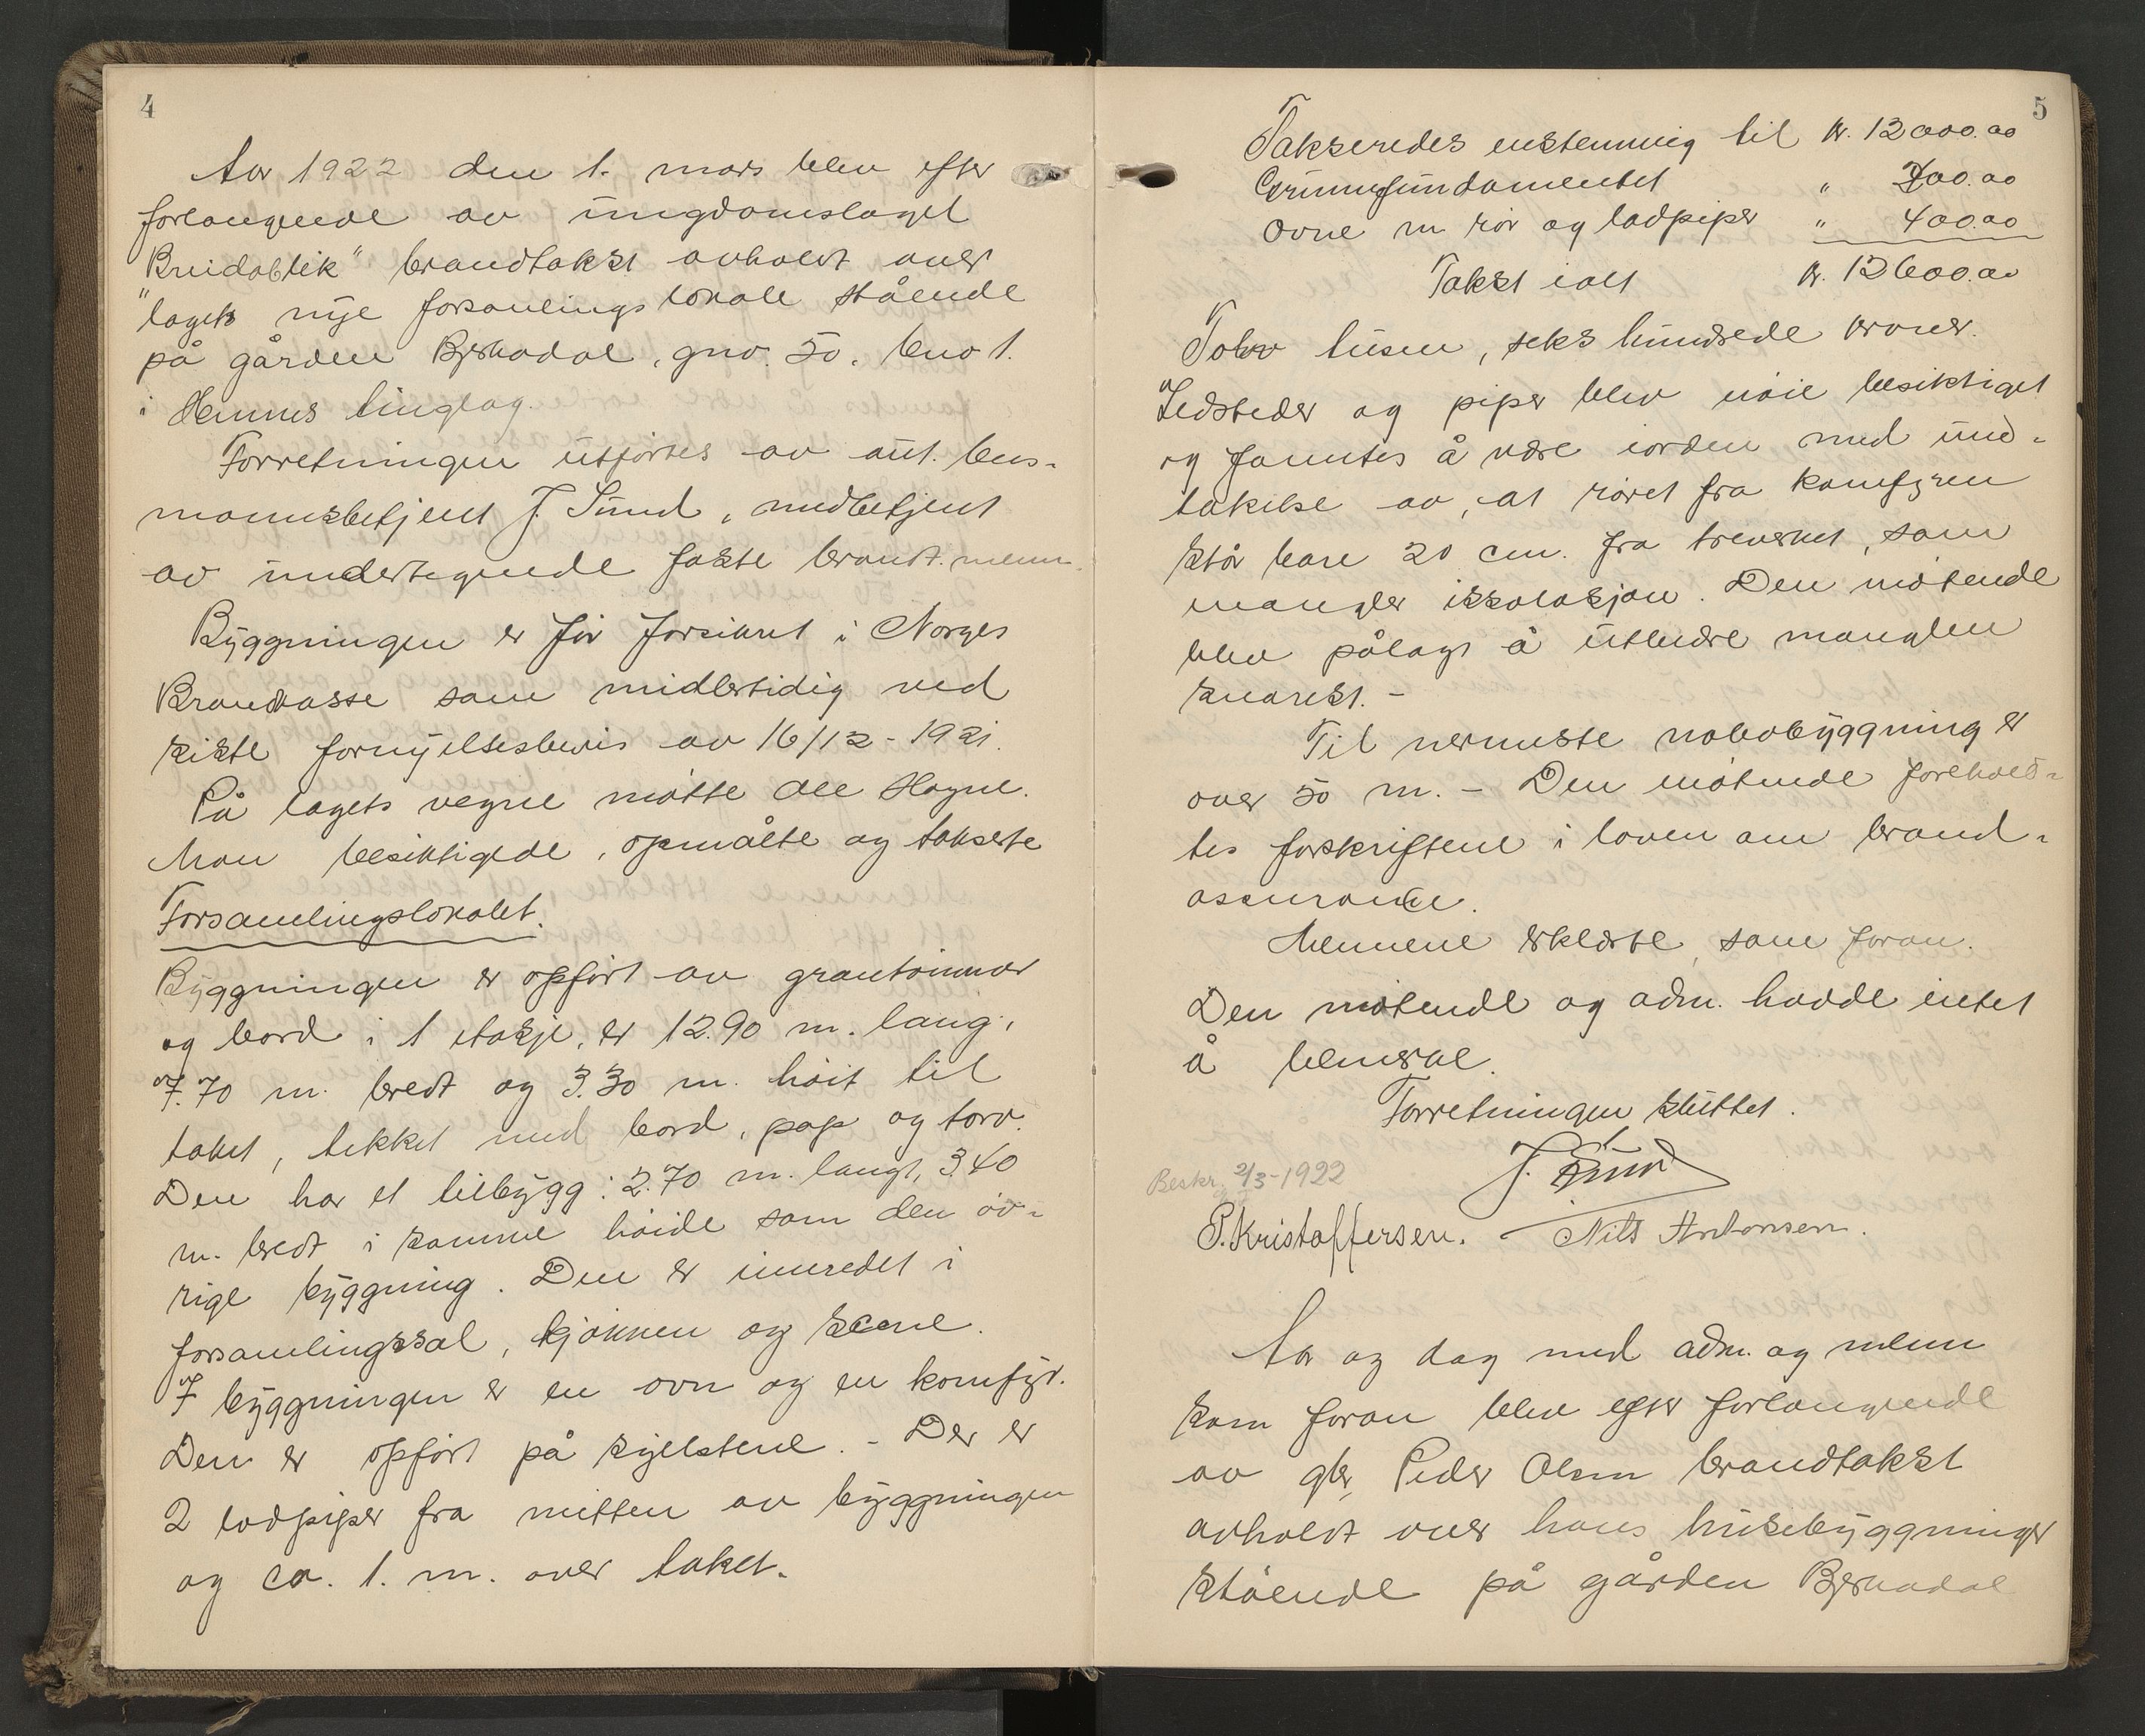 4
Aar 1922 den 1. mars blev efter
forlangende av ungdomslaget
"Breidablik" brandtakst avholdt over
lagets nye forsamlingslokale stående
på gården Bjerkadal, gno. 50, bno 1.
i Hemnes tinglag.
Forretningen utførtes av aut. lens-
mannsbetjent J. Sund, medbetjent
av undertegnede faste brandt. menn.
Byggningen er før forsikret i Norges
Brandkasse som midlertidig ved
siste fornyelsesbevis av 16/12-1921.
På lagets vegne møtte Ole Hagne.
Man besiktigede, opmålte og takserte
Forsamlingslokalet.
Byggningen er opført av grantømmer
og bord i 1 etasje, er 12.90 m. lang,
7.70 m. bredt og 3.30 m. høit til
taket, tekket med bord, pap og torv.
Den har et tilbygg: 2.70 m. langt, 3.40
m. bredt i samme høide som den øv-
rige byggning. Den er innredet i
forsamlingssal, kjøkken og scene.
I byggningen er en ovn og en komfyr.
Den er opført på sjelstene. - Der er
2 lodpiper fra mitten av byggningen
og ca. 1. m. over taket.
5
Takseredes enstemmig til kr. 12000.00
Grunnfundamentet " 200.00
Ovne m rør og lodpiper " 400.00
Takst ialt kr. 12600.00
Tolv tusen, seks hundrede kroner.
Ildsteder og piper blev nøie besiktiget
og fanntes å være iorden med und-
takelse av, at røret fra komfyren
står bare 20 cm. fra treverket, som
mangler issolasjon. Den møtende
blev pålagt å utbedre manglen
snarest. -
Til nermeste nabobyggning er
over 50 m. - Den møtende forehold-
tes forskriftene i loven om brand-
assurance.
Mennene erklærte som foran.
Den møtende og adm. hadde intet
å bemerke.
Forretningen sluttet.
J. Sund
Beskr. 2/3-1922
P. Kristoffersen. Nils Antonsen.
Aar og dag med adm. og menn
som foran blev efter forlangende
av gbr. Peder Olsen brandtakst
avholdt over hans husebyggninger
stående på gården Bjerkadal